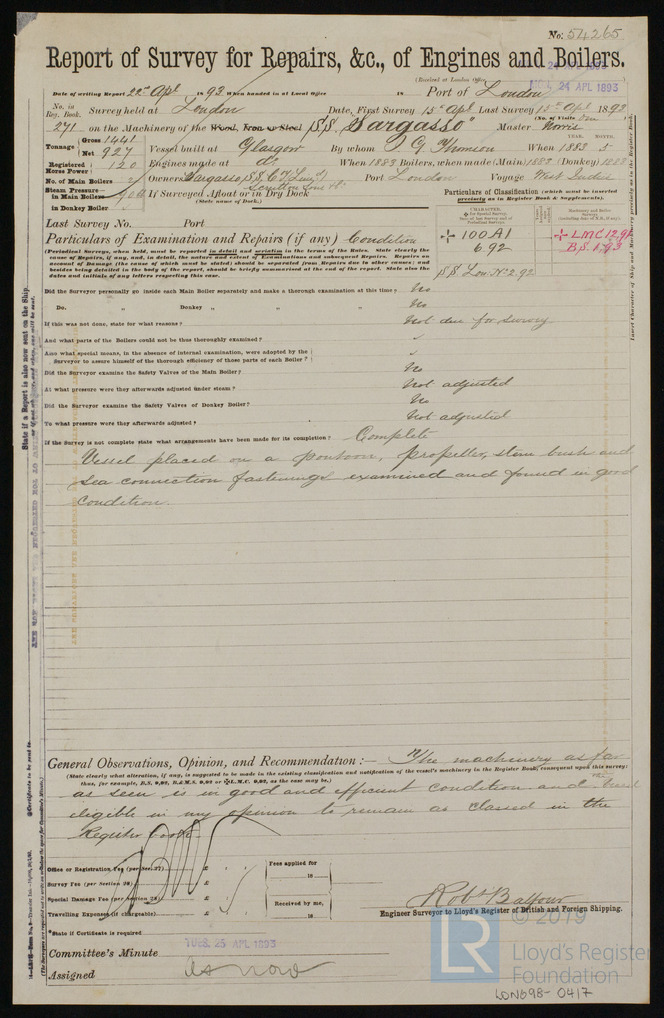 No. 54265
Report of Survey for Repairs, &c., of Engines and Boilers.
(Received at London Office
MON. 24 APL 1893
Date of writing Report 22nd Apl 1893 When handed in at Local Office 18 Port of London
No. in Reg. Book. 271 Survey held at London Date, First Survey 15th Apl Last Survey 15th Apl 1893
(No. of Visits One)
on the Machinery of the Wood, Iron or Steel S.S. "Sargasso" Master Norris
Tonnage Gross 1441 Net 927 Vessel built at Glasgow By whom Thomson When 1883 5
YEAR. MONTH.
Registered Horse Power 120 Engines made at do When 1883 Boilers, when made (Main) 1883 (Donkey) 1883
No. of Main Boilers 2 Owners Sargasso S.S. Co (Lim'd) Port London Voyage West Indies
Scrutton Sons & Co
Steam Pressure in Main Boilers 90 lb If Surveyed Afloat or in Dry Dock
(State name of Dock.)
in Donkey Boiler
Particulars of Classification (which must be inserted precisely as in Register Book & Supplements).
Last Survey No. Port
CHARACTER.
Machinery and Boiler Survey
100A1 LMC 12.91
6.92 B.S. 1.93
SS Lon. No 2. 92
Particulars of Examination and Repairs (if any) Condition
(Periodical Surveys, when held, must be reported in detail and seriatim in the terms of the Rules. State clearly the
cause of Repairs, if any, and, in detail, the nature and extent of Examinations and subsequent Repairs. Repairs on
account of Damage (the cause of which must be stated) should be separated from Repairs due to other causes; and
besides being detailed in the body of the report, should be briefly summarised at the end of the report. State also the
dates and initials of any letters respecting this case.
Did the Surveyor personally go inside each Main Boiler separately and make a thorough examination at this time? No
Do. " Donkey " " " No
If this was not done, state for what reasons? Not due for survey
And what parts of the Boilers could not be thus thoroughly examined?
Also what special means, in the absence of internal examination, were adopted by the
Surveyor to assure himself of the thorough efficiency of those parts of each Boiler?
Did the Surveyor examine the Safety Valves of the Main Boiler? No
At what pressure were they afterwards adjusted under steam? Not adjusted
Did the Surveyor examine the Safety Valves of Donkey Boiler? No
To what pressure were they afterwards adjusted? Not adjusted
If the Survey is not complete state what arrangements have been made for its completion? Complete
Vessel placed on a pontoon, propeller, stern bush and
sea connection fastenings examined and found in good
condition.
General Observations, Opinion, and Recommendation:— The machinery as far
(State clearly what alteration, if any, is suggested to be made in the existing classification and notification of the vessel's machinery in the Register Book, consequent upon this survey:
thus, for example, B.S. 9,92, B.&M.S. 9,92 or L.M.C. 9,92, as the case may be.)
as seen is in good and efficient condition and
eligible in my opinion to remain as classed in the
Register book.
Office or Registration Fee (per Sec. 27) £
Survey Fee (per Section 28) £
Special Damage Fee (per Section 28) £
Travelling Expenses (if chargeable) £
Fees applied for
18
Received by me,
18
Robt Balfour
Engineer Surveyor to Lloyd's Register of British and Foreign Shipping.
*State if Certificate is required
Committee's Minute TUES. 25 APL 1893
Assigned as now
© 2019
LR
Lloyd's Register
Foundation
LON698-0417
State if a Report is also now sent on the Ship.